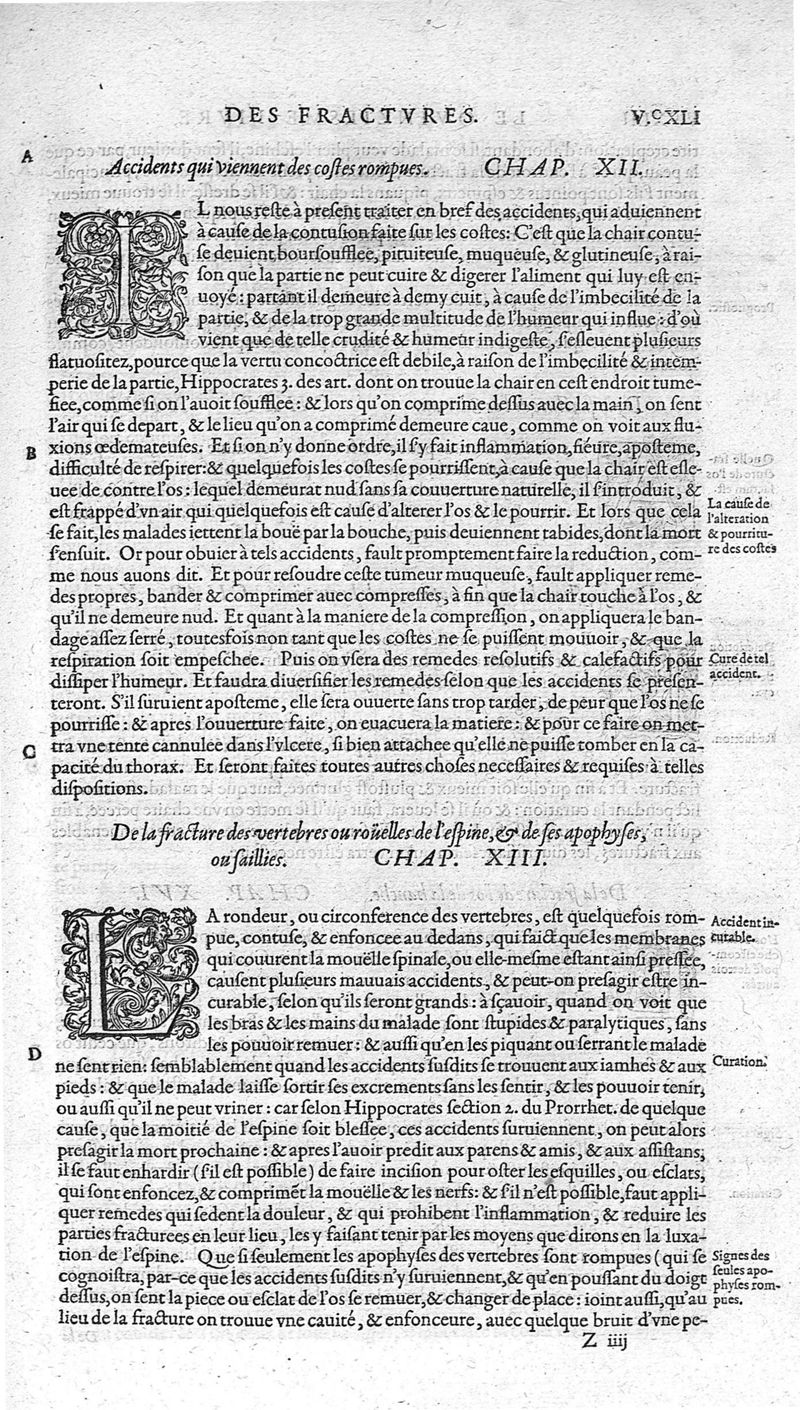 DES FRACTVRES. V.ᶜXLI
A
Accidents qui viennent des costes rompues. CHAP. XII.
IL nous reste à present traiter en bref des accidents, qui aduiennent
à cause de la contusion faite sur les costes: C'est que la chair contu-
se deuient boursoufflee, pituiteuse, muqueuse, & glutineuse, à rai-
son que la partie ne peut cuire & digerer l'aliment qui luy est en-
uoyé: partant il demeure à demy cuit, à cause de l'imbecilité de la
partie, & de la trop grande multitude de l'humeur qui influe: d'où
vient que de telle crudité & humeur indigeste, s'esleuent plusieurs
flatuositez, pource que la vertu concoctrice est debile, à raison de l'imbecilité & intem-
perie de la partie, Hippocrates 3. des art. dont on trouue la chair en cest endroit tume-
fiee, comme si on l'auoit soufflee: & lors qu'on comprime dessus auec la main, on sent
l'air qui se depart, & le lieu qu'on a comprimé demeure caue, comme on voit aux flu-
B
xions œdemateuses. Et si on n'y donne ordre, il s'y fait inflammation, fiéure, aposteme,
difficulté de respirer: & quelquefois les costes se pourrissent, à cause que la chair est esle-
uee de contre l'os: lequel demeurāt nud sans sa couuerture naturelle, il s'introduit, &
est frappé d'vn air qui quelquefois est cause d'alterer l'os & le pourrir. Et lors que cela
se fait, les malades iettent la bouë par la bouche, puis deuiennent tabides, dont la mort
s'ensuit. Or pour obuier à tels accidents, fault promptement faire la reduction, com-
me nous auons dit. Et pour resoudre ceste tumeur muqueuse, fault appliquer reme-
des propres, bander & comprimer auec compresses, à fin que la chair touche à l'os, &
qu'il ne demeure nud. Et quant à la maniere de la compression, on appliquera le ban-
dage assez serré, toutesfois non tant que les costes ne se puissent mouuoir, & que la
respiration soit empeschee. Puis on vsera des remedes resolutifs & calefactifs pour
dissiper l'humeur. Et faudra diuersifier les remedes selon que les accidents se presen-
teront. S'il suruient aposteme, elle sera ouuerte sans trop tarder, de peur que l'os ne se
pourrisse: & apres l'ouuerture faite, on euacuera la matiere: & pour ce faire on met-
C
tra vne tente cannulee dans l'vlcere, si bien attachee qu'elle ne puisse tomber en la ca-
pacité du thorax. Et seront faites toutes autres choses necessaires & requises à telles
dispositions.
La cause de
l'alteration
& pourritu-
re des costes
Cure de tel
accident.
De la fracture des vertebres ou roüelles de l'espine, & de ses apophyses,
ou saillies. CHAP. XIII.
LA rondeur, ou circonference des vertebres, est quelquefois rom-
pue, contuse, & enfoncee au dedans, qui faict que les membranes
qui couurent la mouëlle spinale, ou elle-mesme estant ainsi pressee,
causent plusieurs mauuais accidents, & peut-on presagir estre in-
curable, selon qu'ils seront grands: à sçauoir, quand on voit que
les bras & les mains du malade sont stupides & paralytiques, sans
les pouuoir remuer: & aussi qu'en les piquant ou serrant le malade
D
ne sent rien: semblablement quand les accidents susdits se trouuent aux iambes & aux
pieds: & que le malade laisse sortir ses excrements sans les sentir, & les pouuoir tenir,
ou aussi qu'il ne peut vriner: car selon Hippocrates section 2. du Prorrhet. de quelque
cause, que la moitié de l'espine soit blessee, ces accidents suruiennent, on peut alors
presagir la mort prochaine: & apres l'auoir predit aux parens & amis, & aux assistans,
il se faut enhardir (s'il est possible) de faire incision pour oster les esquilles, ou esclats,
qui sont enfoncez, & comprimēt la mouëlle & les nerfs: & s'il n'est possible, faut appli-
quer remedes qui sedent la douleur, & qui prohibent l'inflammation, & reduire les
parties fracturees en leur lieu, les y faisant tenir par les moyens que dirons en la luxa-
tion de l'espine. Que si seulement les apophyses des vertebres sont rompues (qui se
cognoistra, par-ce que les accidents susdits n'y suruiennent, & qu'en poussant du doigt
dessus, on sent la piece ou esclat de l'os se remuer, & changer de place: ioint aussi, qu'au
lieu de la fracture on trouue vne cauité, & enfonceure, auec quelque bruit d'vne pe-
Accident in-
curable.
Curation.
Signes des
seules apo-
physes rom-
pues.
Z iiij